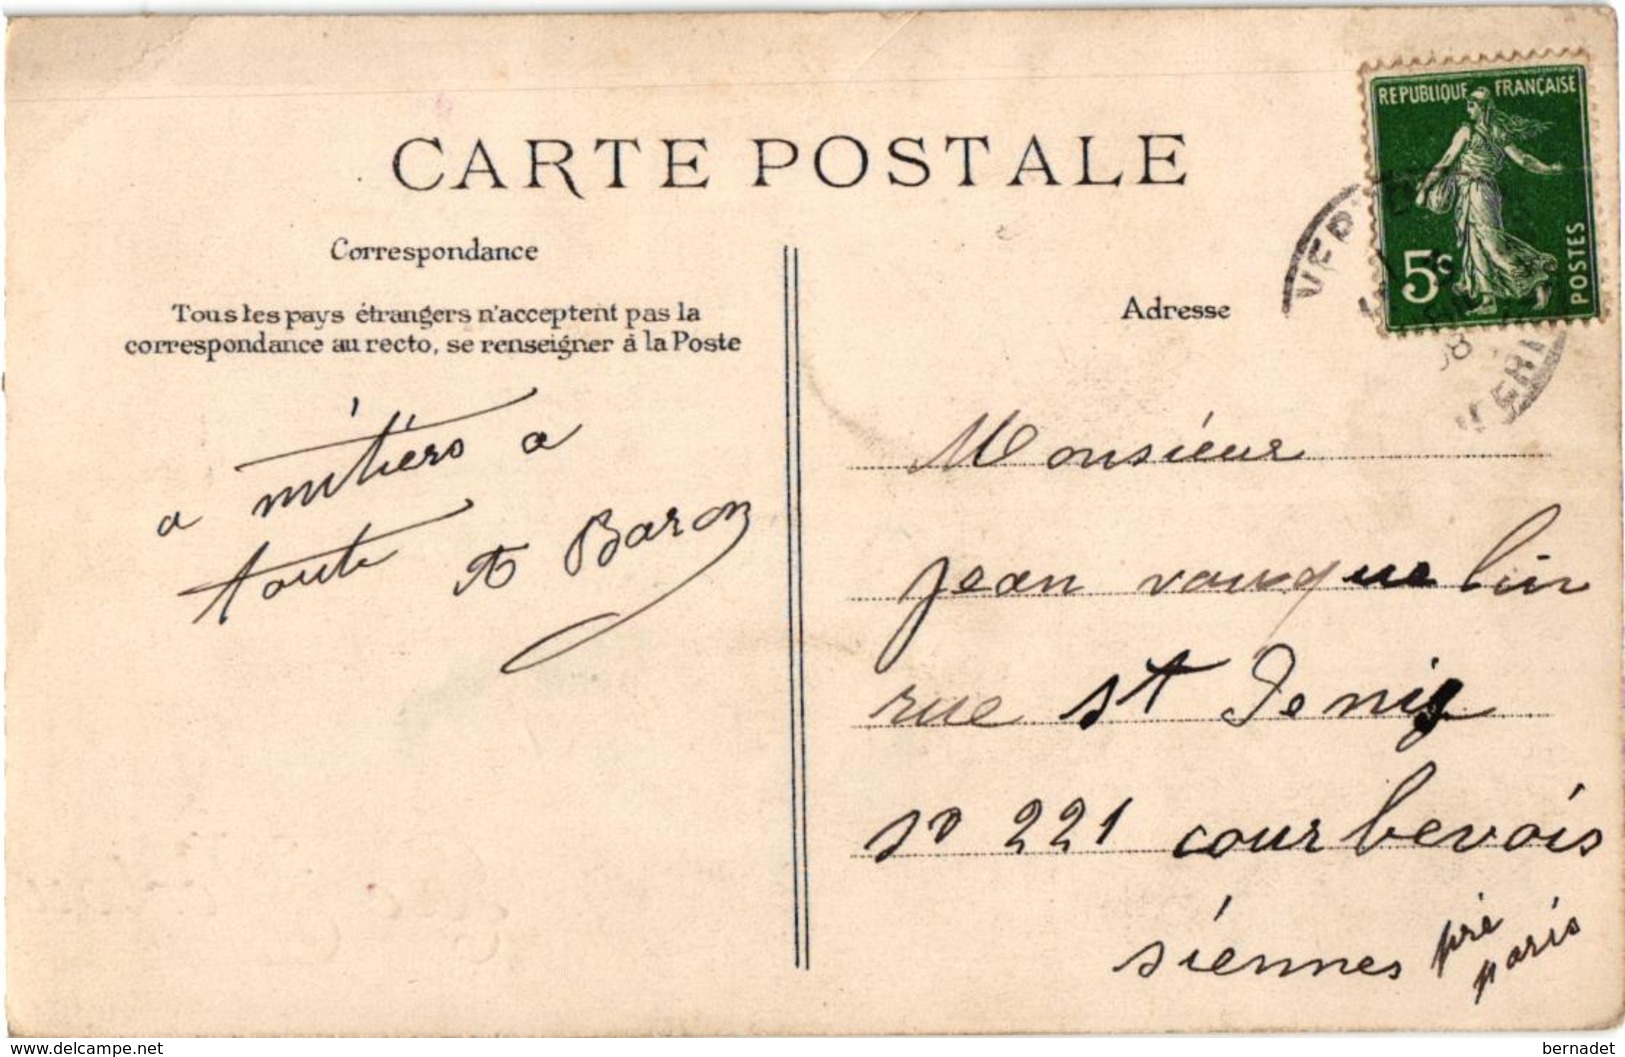 CARTE POSTALE
REPUBLIQUE FRANÇAISE
5c
POSTES
Correspondance
Tous les pays étrangers n'acceptent pas la
correspondance au recto, se renseigner à la Poste
Adresse
a mitiers a
toute A Baron
Monsieur
jean vauquelin
rue st Denis
no 221 courbevois
siennes pré
paris
www.delcampe.net
bernadet